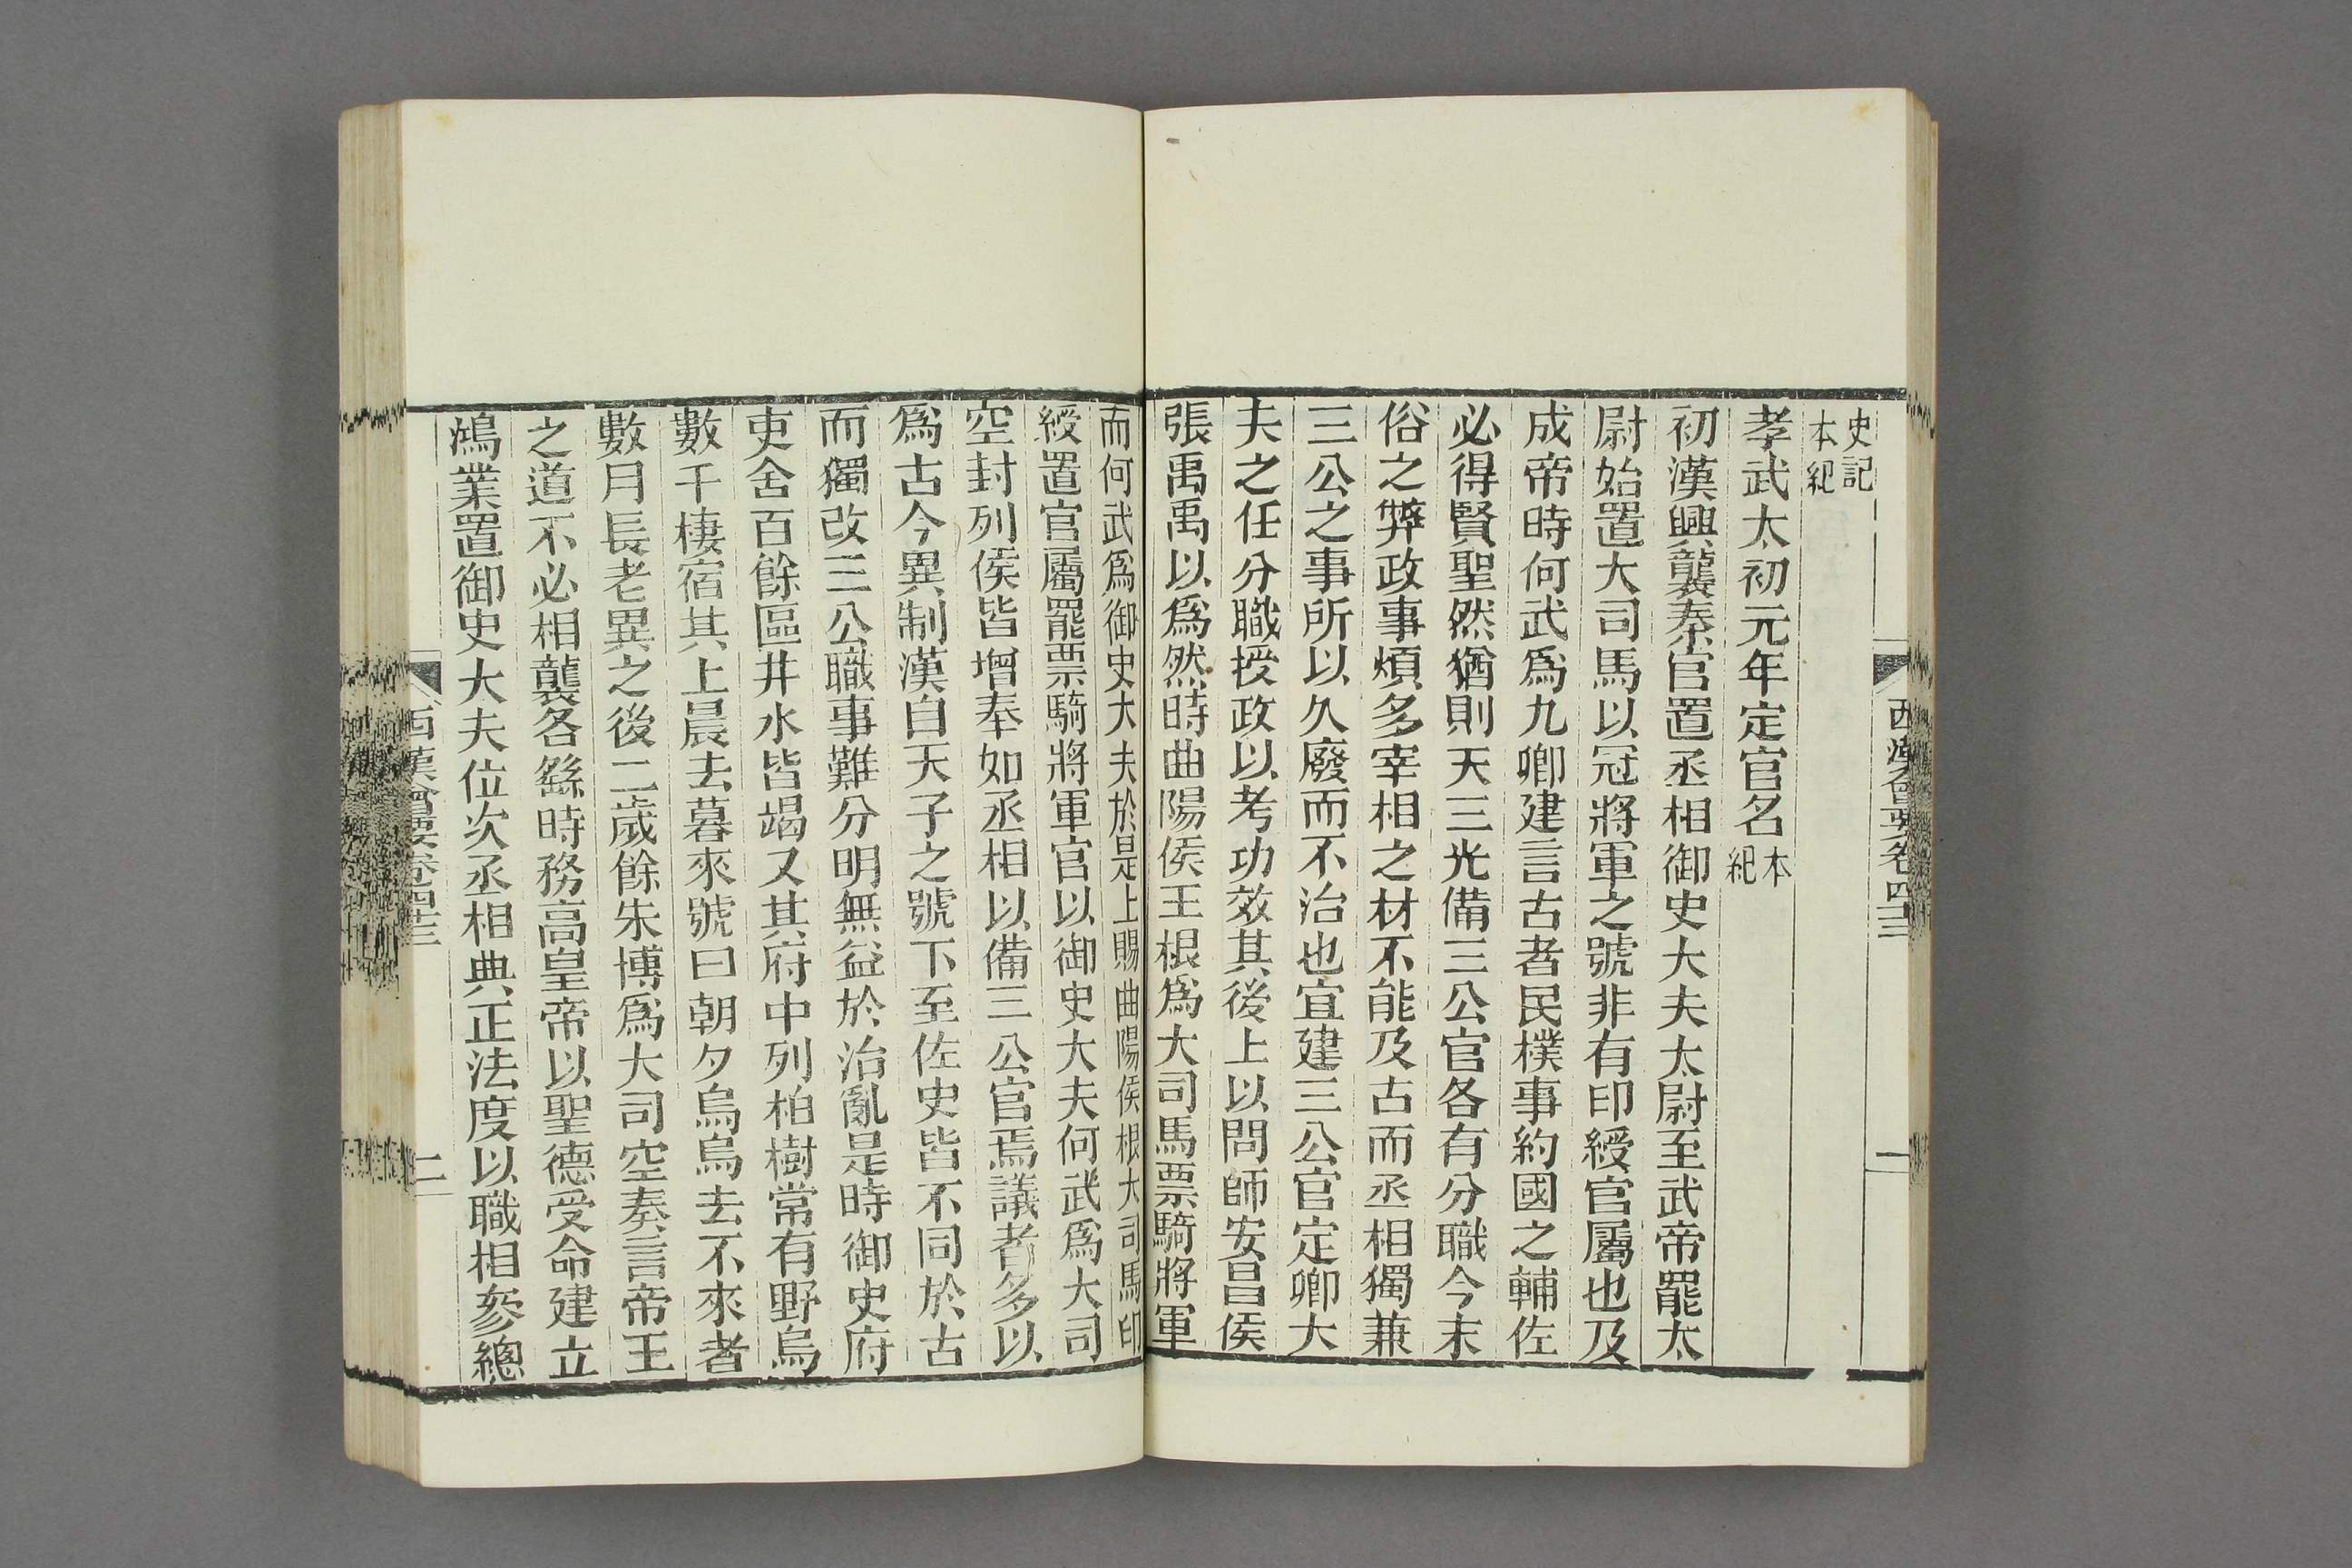 西漢會要卷四十三
一
史記
本紀
孝武太初元年定官名本紀
初漢興襲秦官置丞相御史大夫太尉至武帝罷太
尉始置大司馬以冠將軍之號非有印綬官屬也及
成帝時何武爲九卿建言古者民樸事約國之輔佐
必得賢聖然猶則天三光備三公官各有分職今末
俗之弊政事煩多宰相之材不能及古而丞相獨兼
三公之事所以久廢而不治也宜建三公官定卿大
夫之任分職授政以考功效其後上以問師安昌侯
張禹禹以爲然時曲陽侯王根爲大司馬票騎將軍
而何武爲御史大夫於是上賜曲陽侯根大司馬印
綬置官屬罷票騎將軍官以御史大夫何武爲大司
空封列侯皆增奉如丞相以備三公官焉議者多以
爲古今異制漢自天子之號下至佐史皆不同於古
而獨改三公職事難分明無益於治亂是時御史府
吏舍百餘區井水皆竭又其府中列柏樹常有野烏
數千棲宿其上晨去暮來號曰朝夕烏烏去不來者
數月長老異之後二歲餘朱博爲大司空奏言帝王
之道不必相襲各繇時務高皇帝以聖德受命建立
鴻業置御史大夫位次丞相典正法度以職相參總
西漢會要卷四十三
二